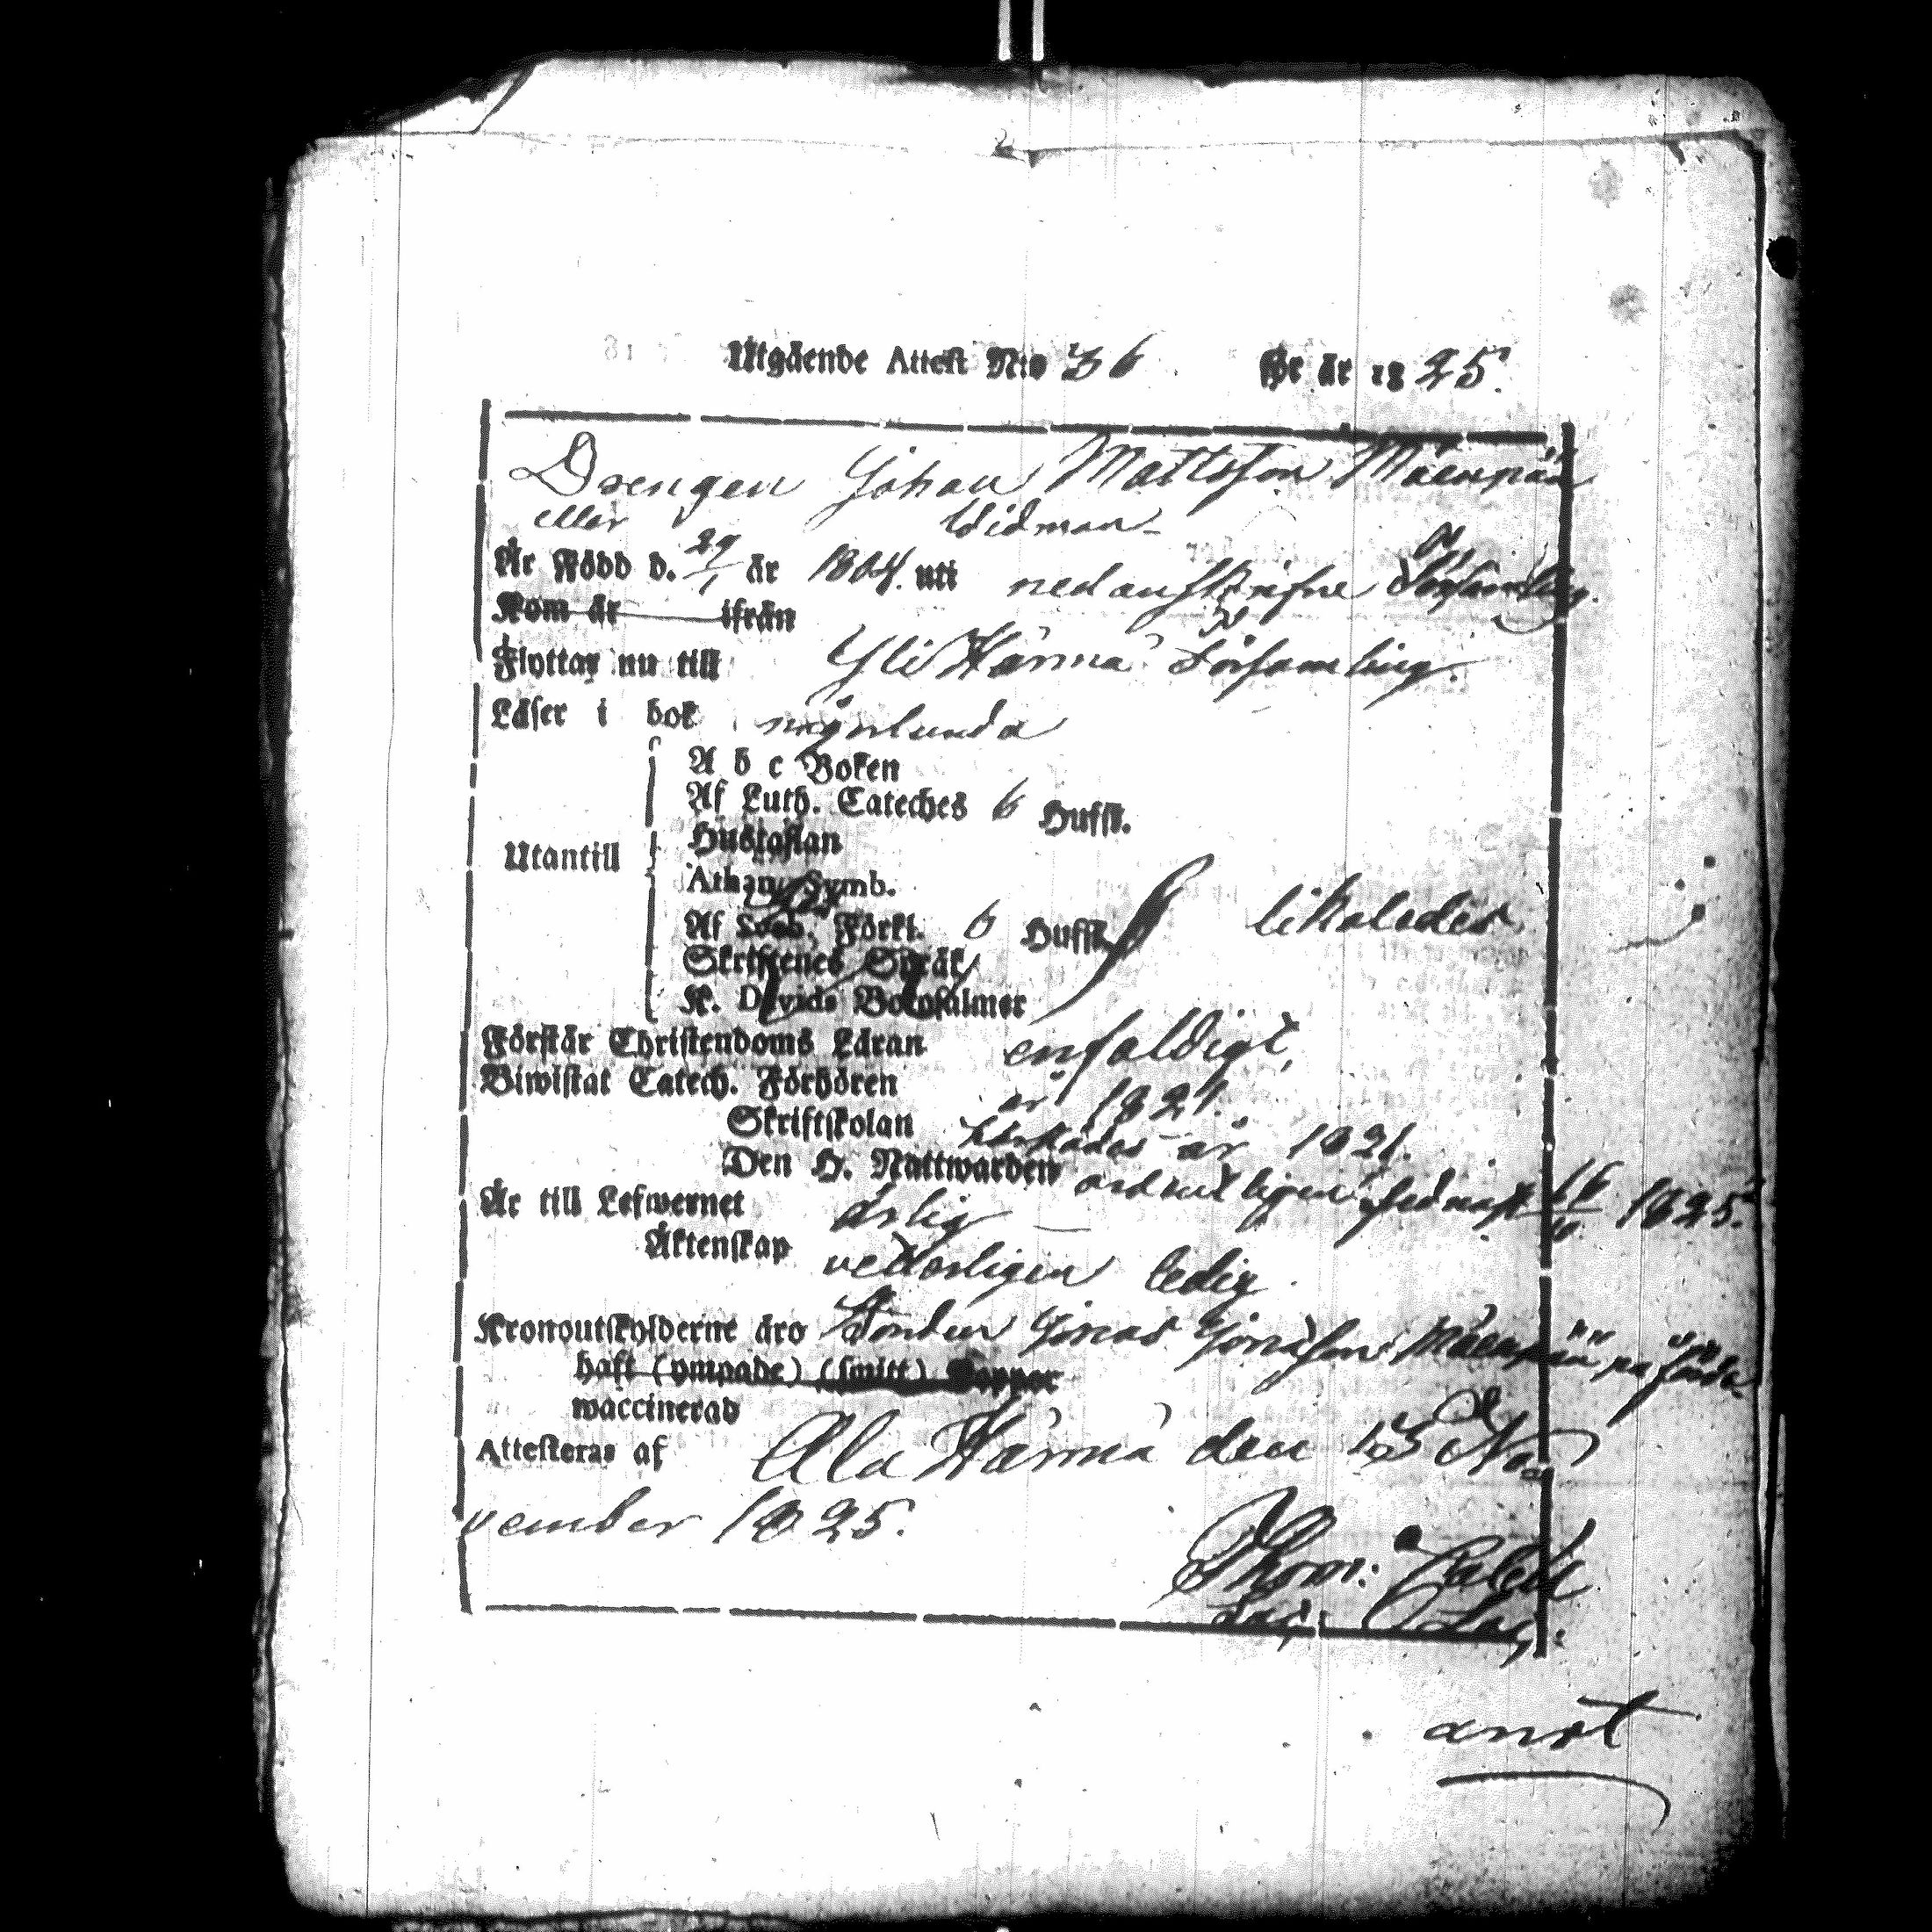 Utgående Attest N:o 36 För år 1825.
Drengen Johan Mattsson Mäenpää
eller Widman
Är Född d. 29/1 år 1804. uti nedanskrifne Församling.
Kom år ifrån
Flyttar nu till Yli Härmä Församling.
Läser i bok någorlunda
A b c Boken
Af Luth. Cateches 6 Hufst.
Hustaflan
Utantill
Athan. Symb.
Af Förkl. 6 Hufst. likaledes
Skriftenes Språk
K. Davids Botpsalmer
Förstår Christendoms Läran enfaldigt,
Biwistat Catech. Förhören år 1824.
Skriftskolan år 1821.
Den H. Nattwarden ordentligen sednast 16/10 1825.
Är till Lefwernet ärlig
Äktenskap veterligen ledig.
Kronoutskylderne äro Bonden Jonas Jonasson Mäenpää påförda
haft (ympade) (smitt) Koppor
waccinerad
Attesteras af Ala Härmä den 13 No-
vember 1825.
Thom:
anot